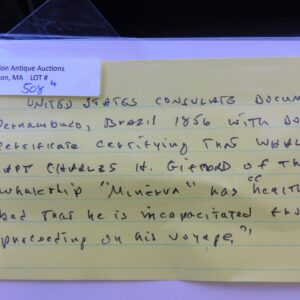 ion Antique Auctions
on, MA LOT #
508 4
UNITED STATES CONSULATE DOCUM
Pernambuco, BRAZIL 1856 WITH DO
CERTIFICATE CERTIFYING THAT WHAL
APT CHARLES H. GIFFORD OF TH
WHALESHIP "MINERVA" HAS "HEALTH
bad THAT he is INCAPACITATED FRO
proceeding on his voyage."